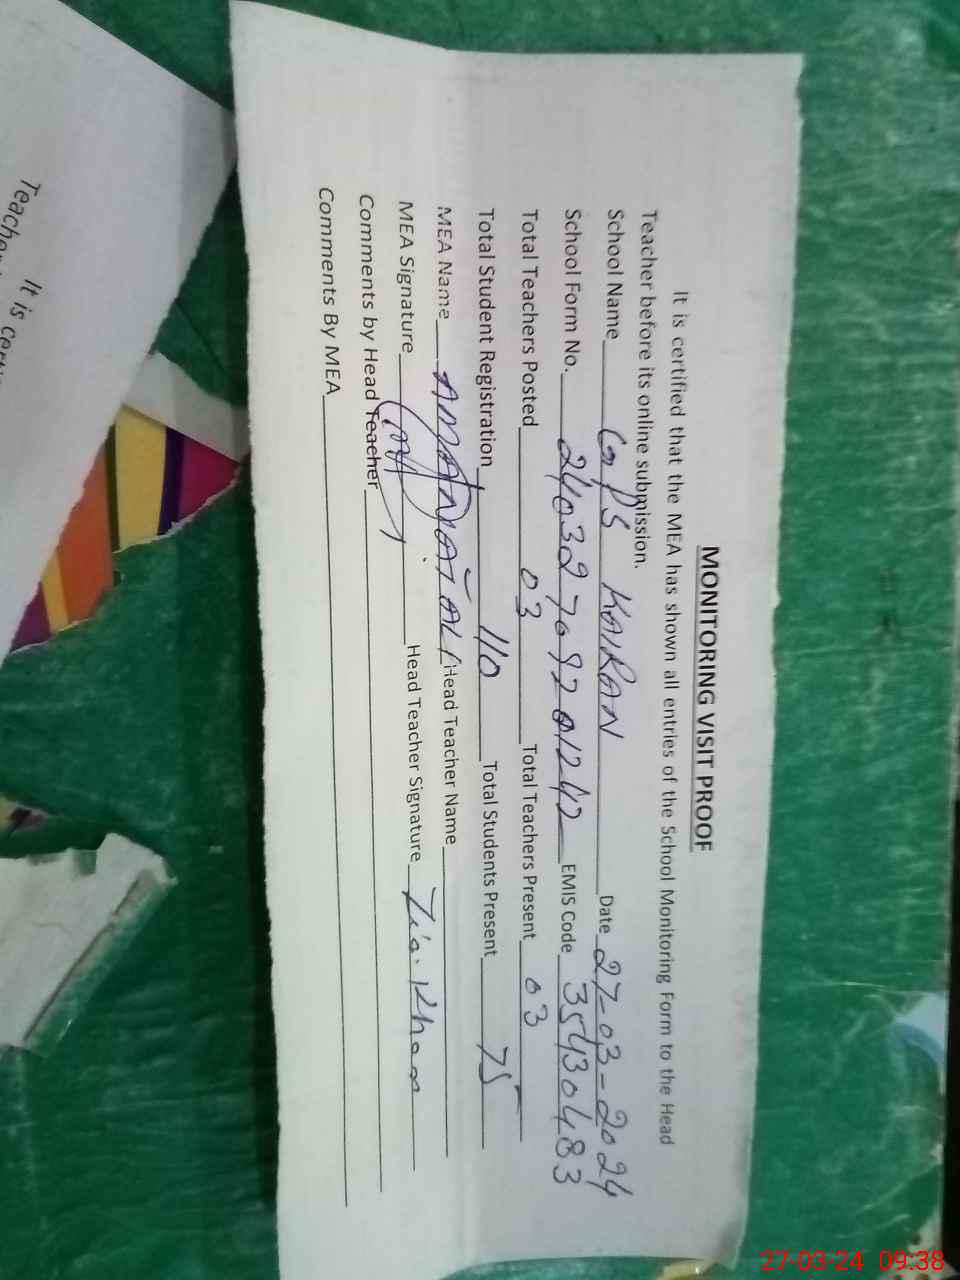 MONITORING VISIT PROOF
It is certified that the MEA has shown all entries of the School Monitoring Form to the Head
Teacher before its online submission.
School Name GPS KAIRAN Date 27-03-2024
School Form No. 240327092701242 EMIS Code 35430483
Total Teachers Posted 03 Total Teachers Present 03
Total Student Registration 110 Total Students Present 75
MEA Name AMANAT ALI Head Teacher Name
MEA Signature Head Teacher Signature Zia Khan
Comments by Head Teacher
Comments By MEA
It is cert
Teacher
27-03-24 09:38